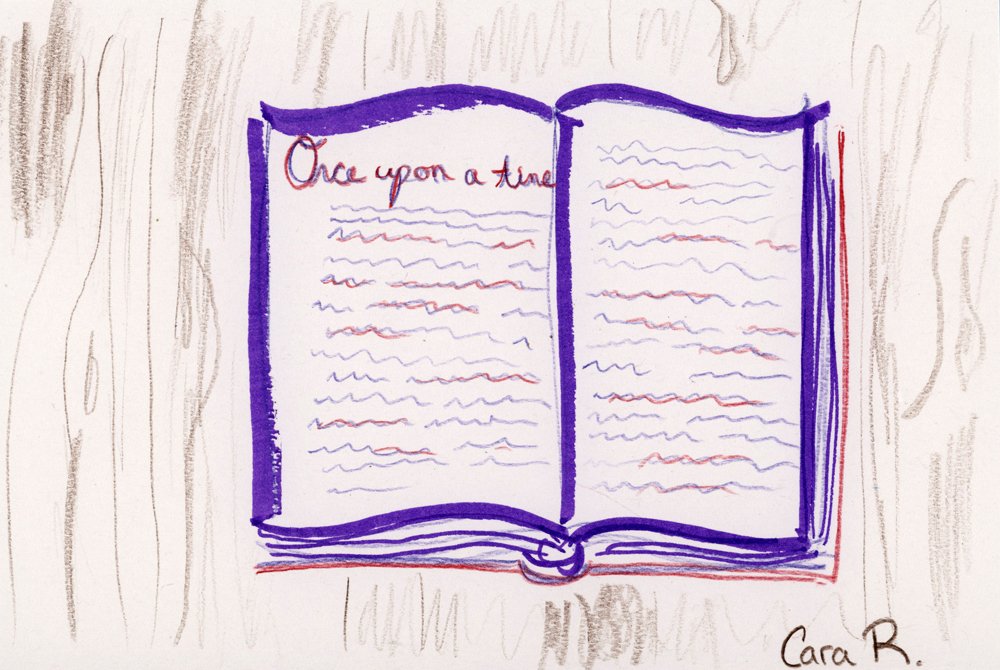 Once upon a time
Cara R.